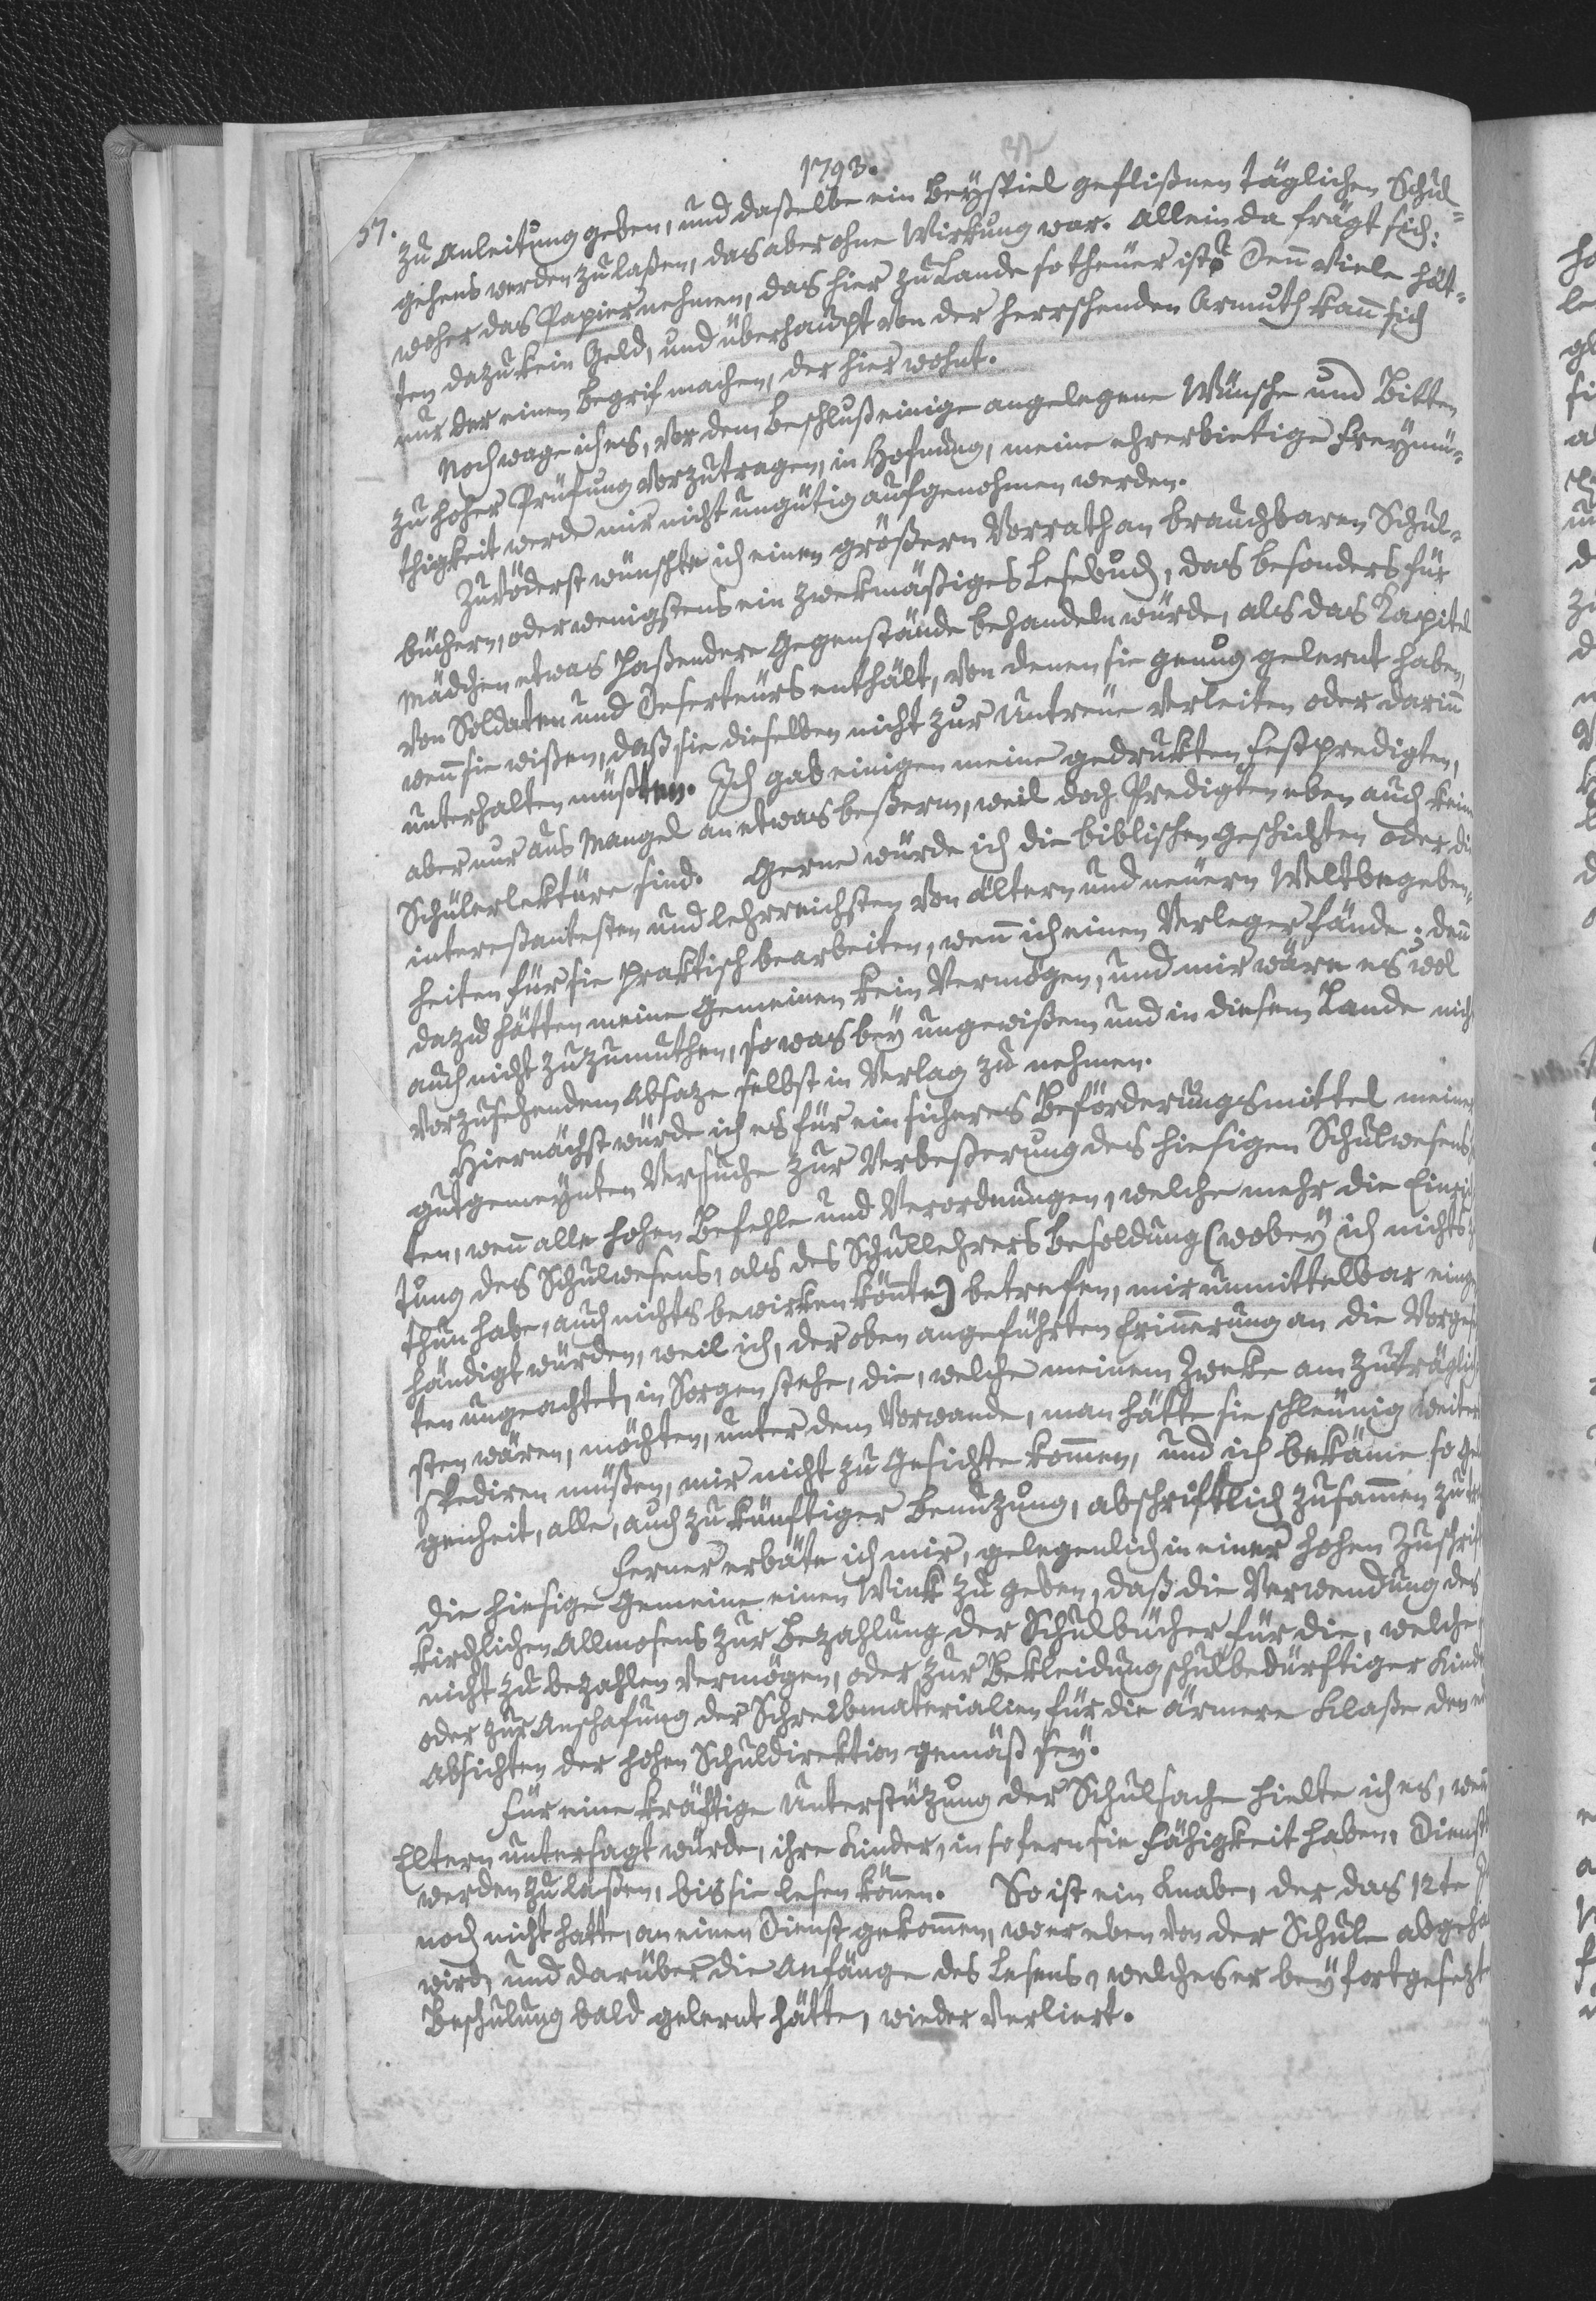 1793.
57.
zu Anleitung geben, und daßelbe ein Beyspiel geflißnen täglichen Schul-
gehens werden zu laßen, das aber ohne Wirkung war. Allein da frägt sich:
woher das Papier nehmen, das hier zu Lande so theuer ist? Deñ viele hät-
ten dazu kein Geld, und überhaupt von der herrschenden Armuth kañ sich
nur der einen Begrif machen, der hier wohnt.
Noch wage ich es, vor dem Beschluß einige angelegene Wünsche und Bitten
zu hoher Prüfung vorzutragen, in Hofnung, meine ehrerbietige Freymü-
thigkeit werde mir nicht ungütig aufgenohmen werden.
Zuvöderst wünschte ich einen größern Vorrath an brauchbaren Schul-
büchern, oder wenigstens ein zwekmäßiges Lesebuch, das besonders für
Mädchen etwas paßendere Gegenstände behandeln würde, als das Kapitel
von Soldaten und Deserteurs enthält, von denen sie genug gelernt haben,
weñ sie wißen, daß sie dieselben nicht zur Untreue verleiten oder dariñ
unterhalten müßten. Ich gab einigen meine gedrukten Festpredigten,
aber nur aus Mangel an etwas beßerm, weil doch Predigten eben auch keine
Schülerlektüre sind. Gerne würde ich die biblischen Geschichten oder die
intereßantesten und lehrreichsten von ältern und neuern Weltbegeben-
heiten für sie praktisch bearbeiten, weñ ich einen Verleger fände; deñ
dazu hätten meine Gemeinen kein Vermögen, und mir wäre es wol
auch nicht zuzumuthen, so was bey ungewißem und in diesem Lande nicht
vorzusehendem Absaze selbst in Verlag zu nehmen.
Hiernächst würde ich es für ein sicheres Beförderungsmittel meiner
gutgemeynten Versuche zur Verbeßerung des hiesigen Schulwesens
ten, weñ alle hohen Befehle und Verordnungen, welche mehr die Einrich
tung des Schulwesens, als des Schullehrers Besoldung (wobey ich nichts
thun habe, auch nichts bewirken köñte) betrefen, mir unmittelbar einge
händigt würden, weil ich, der oben angeführten Eriñerung an die Vorgese
ten ungeachtet, in Sorgen stehe, die, welche meinem Zweke am zuträglich
sten wären, möchten, unter dem Vorwande, man hätte sie schleunig weiter
spediren müßen, mir nicht zu Gesichte kom̃en, und ich bekäme so Gele
genheit, alle, auch zu künftiger Benuzung, abschriftlich zusam̃en zu
Ferner erbäte ich mir, gelegenlich in einer hohen Zuschrift
die hiesige Gemeine einen Wink zu geben, daß die Verwendung des
kirchlichen Allmosens zur Bezahlung der Schulbücher für die, welche
nicht zu bezahlen vermögen, oder zur Bekleidung schulbedürftiger Kinder
oder zur Anschafung der Schreibmaterialien für die ärmere Klaße den
Absichten der hohen Schuldirektion gemäß sey.
Für eine kräftige Unterstüzung der Schulsache hielte ich es, weñ
Eltern untersagt würde, ihre Kinder, in sofern sie Fähigkeit haben, Dienst
werden zu laßen, bis sie lesen köñen. So ist ein Knabe, der das 12te
noch nicht hatte, an einen Dienst gekom̃en, wo er eben von der Schule abgeha
wird, und darüber die Anfänge des Lesens, welches er bey fortgesezte
Beschulung bald gelernt hätte, wieder verliert.